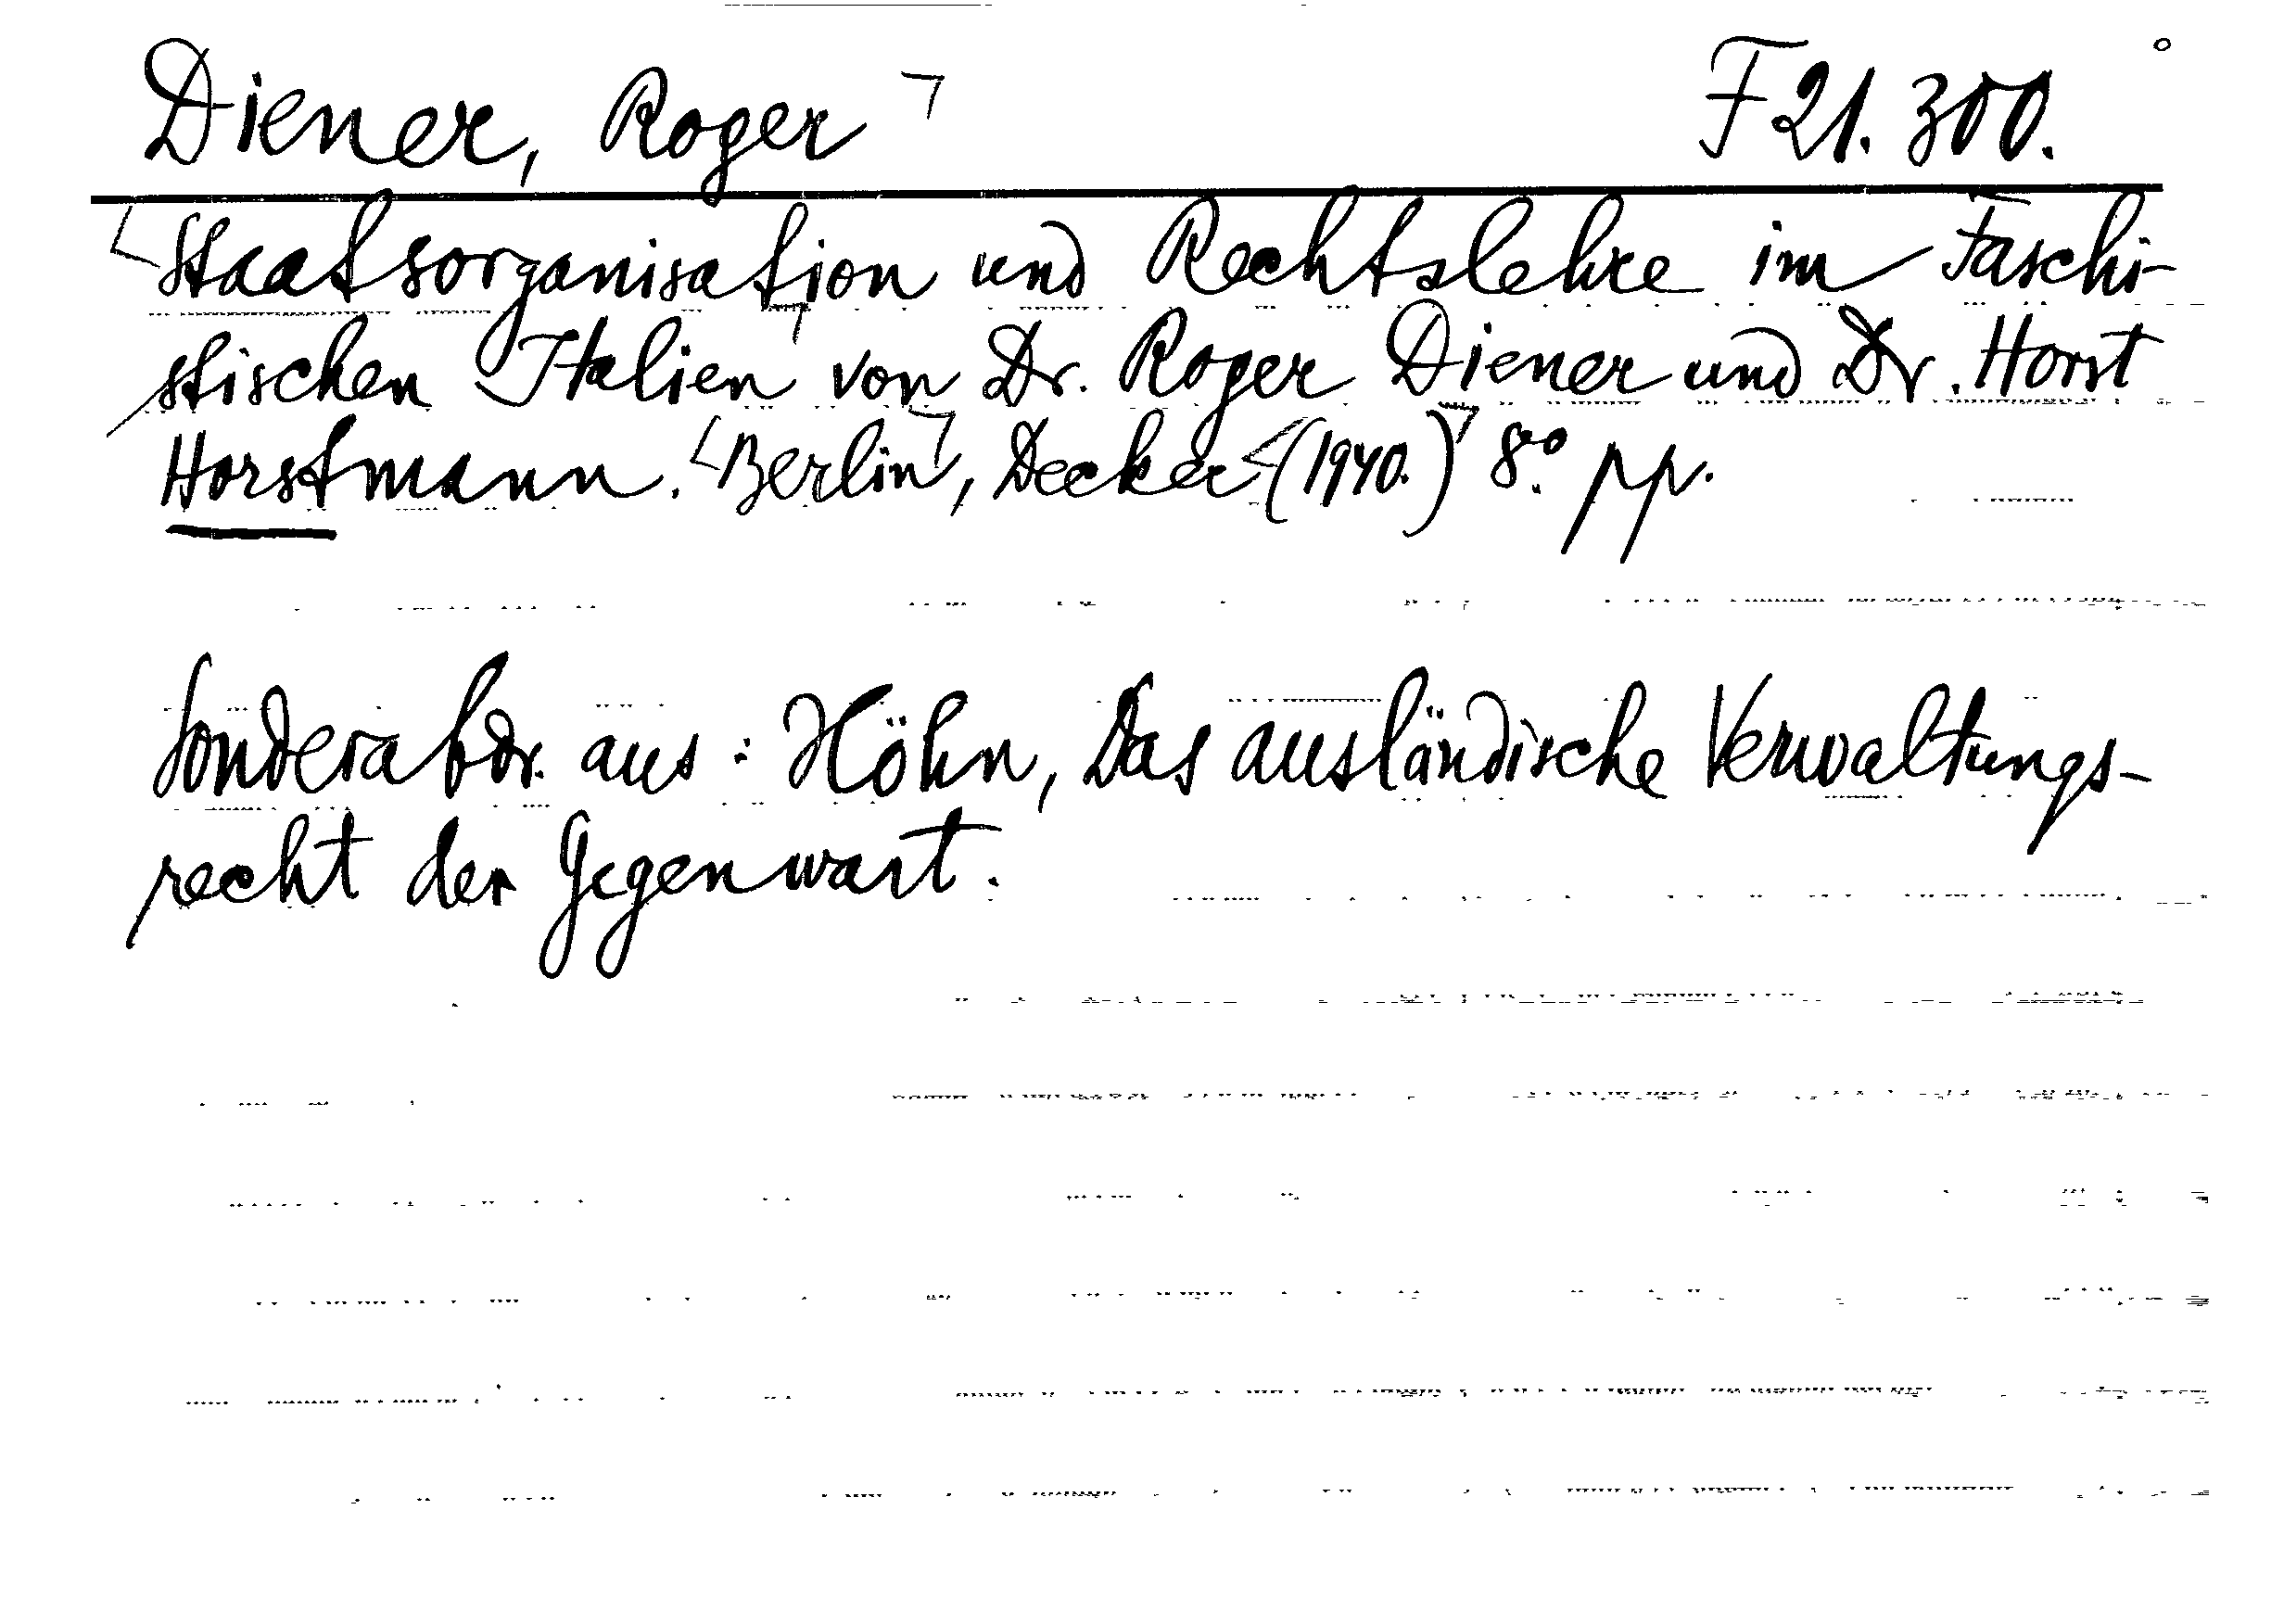 Diener, Roger F 21. 300.
Staatsorganisation und Rechtslehre im Faschi-
stischen Italien von Dr. Roger Diener und Dr. Horst
Horstmann. Berlin, Decker (1940.) 8.° pp.
Sonderabdr. aus: Höhn, Das ausländische Verwaltungs-
recht der Gegenwart.